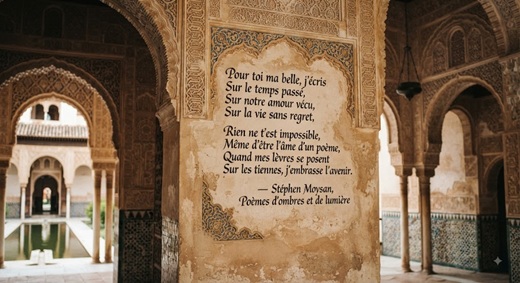 Pour toi ma belle, j'écris
Sur le temps passé,
Sur notre amour vécu,
Sur la vie sans regret,
Rien ne t'est impossible,
Même d'être l'âme d'un poème,
Quand mes lèvres se posent
Sur les tiennes, j'embrasse l'avenir.
— Stéphen Moysan,
Poèmes d'ombres et de lumière